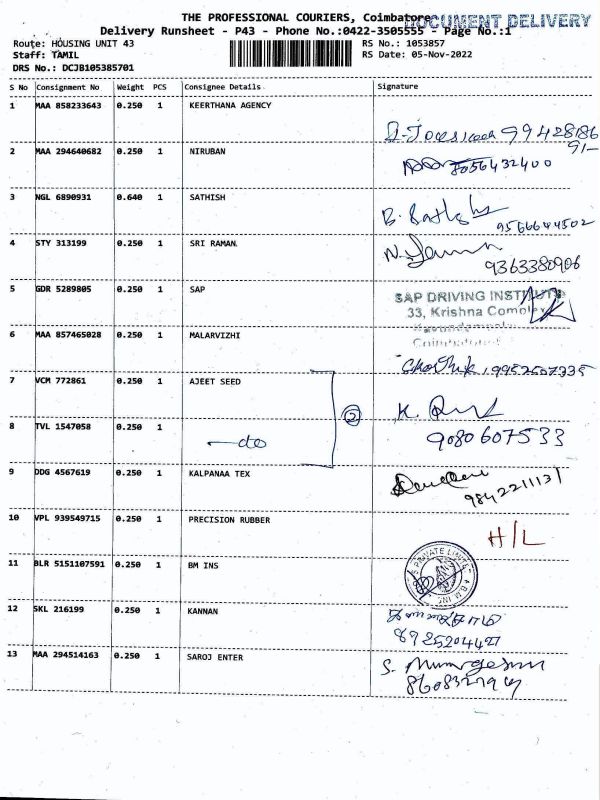 THE PROFESSIONAL COURIERS, Coimbatore
DOCUMENT DELIVERY
Delivery Runsheet - P43 - Phone No.:0422-3505555 - Page No.:1
Route: HOUSING UNIT 43 RS No.: 1053857
Staff: TAMIL RS Date: 05-Nov-2022
DRS No.: DCJB105385701
S No Consignment No Weight PCS Consignee Details Signature
1 MAA 858233643 0.250 1 KEERTHANA AGENCY
99428186
91-
2 MAA 294640682 0.250 1 NIRUBAN
8056432400
3 NGL 6890931 0.640 1 SATHISH
B. Sathish
9566644502
4 STY 313199 0.250 1 SRI RAMAN.
9363380906
5 GDR 5289805 0.250 1 SAP
SAP DRIVING INSTITUTE
33, Krishna Complex
6 MAA 857465028 0.250 1 MALARVIZHI
9952507335
7 VCM 772861 0.250 1 AJEET SEED
K.
8 TVL 1547058 0.250 1
-do
2
9080607533
9 DDG 4567619 0.250 1 KALPANAA TEX
9842211131
10 VPL 939549715 0.250 1 PRECISION RUBBER
H/L
11 BLR 5151107591 0.250 1 BM INS
PRIVATE LIMITED
12 SKL 216199 0.250 1 KANNAN
8925204427
13 MAA 294514163 0.250 1 SAROJ ENTER
S. Murugesan